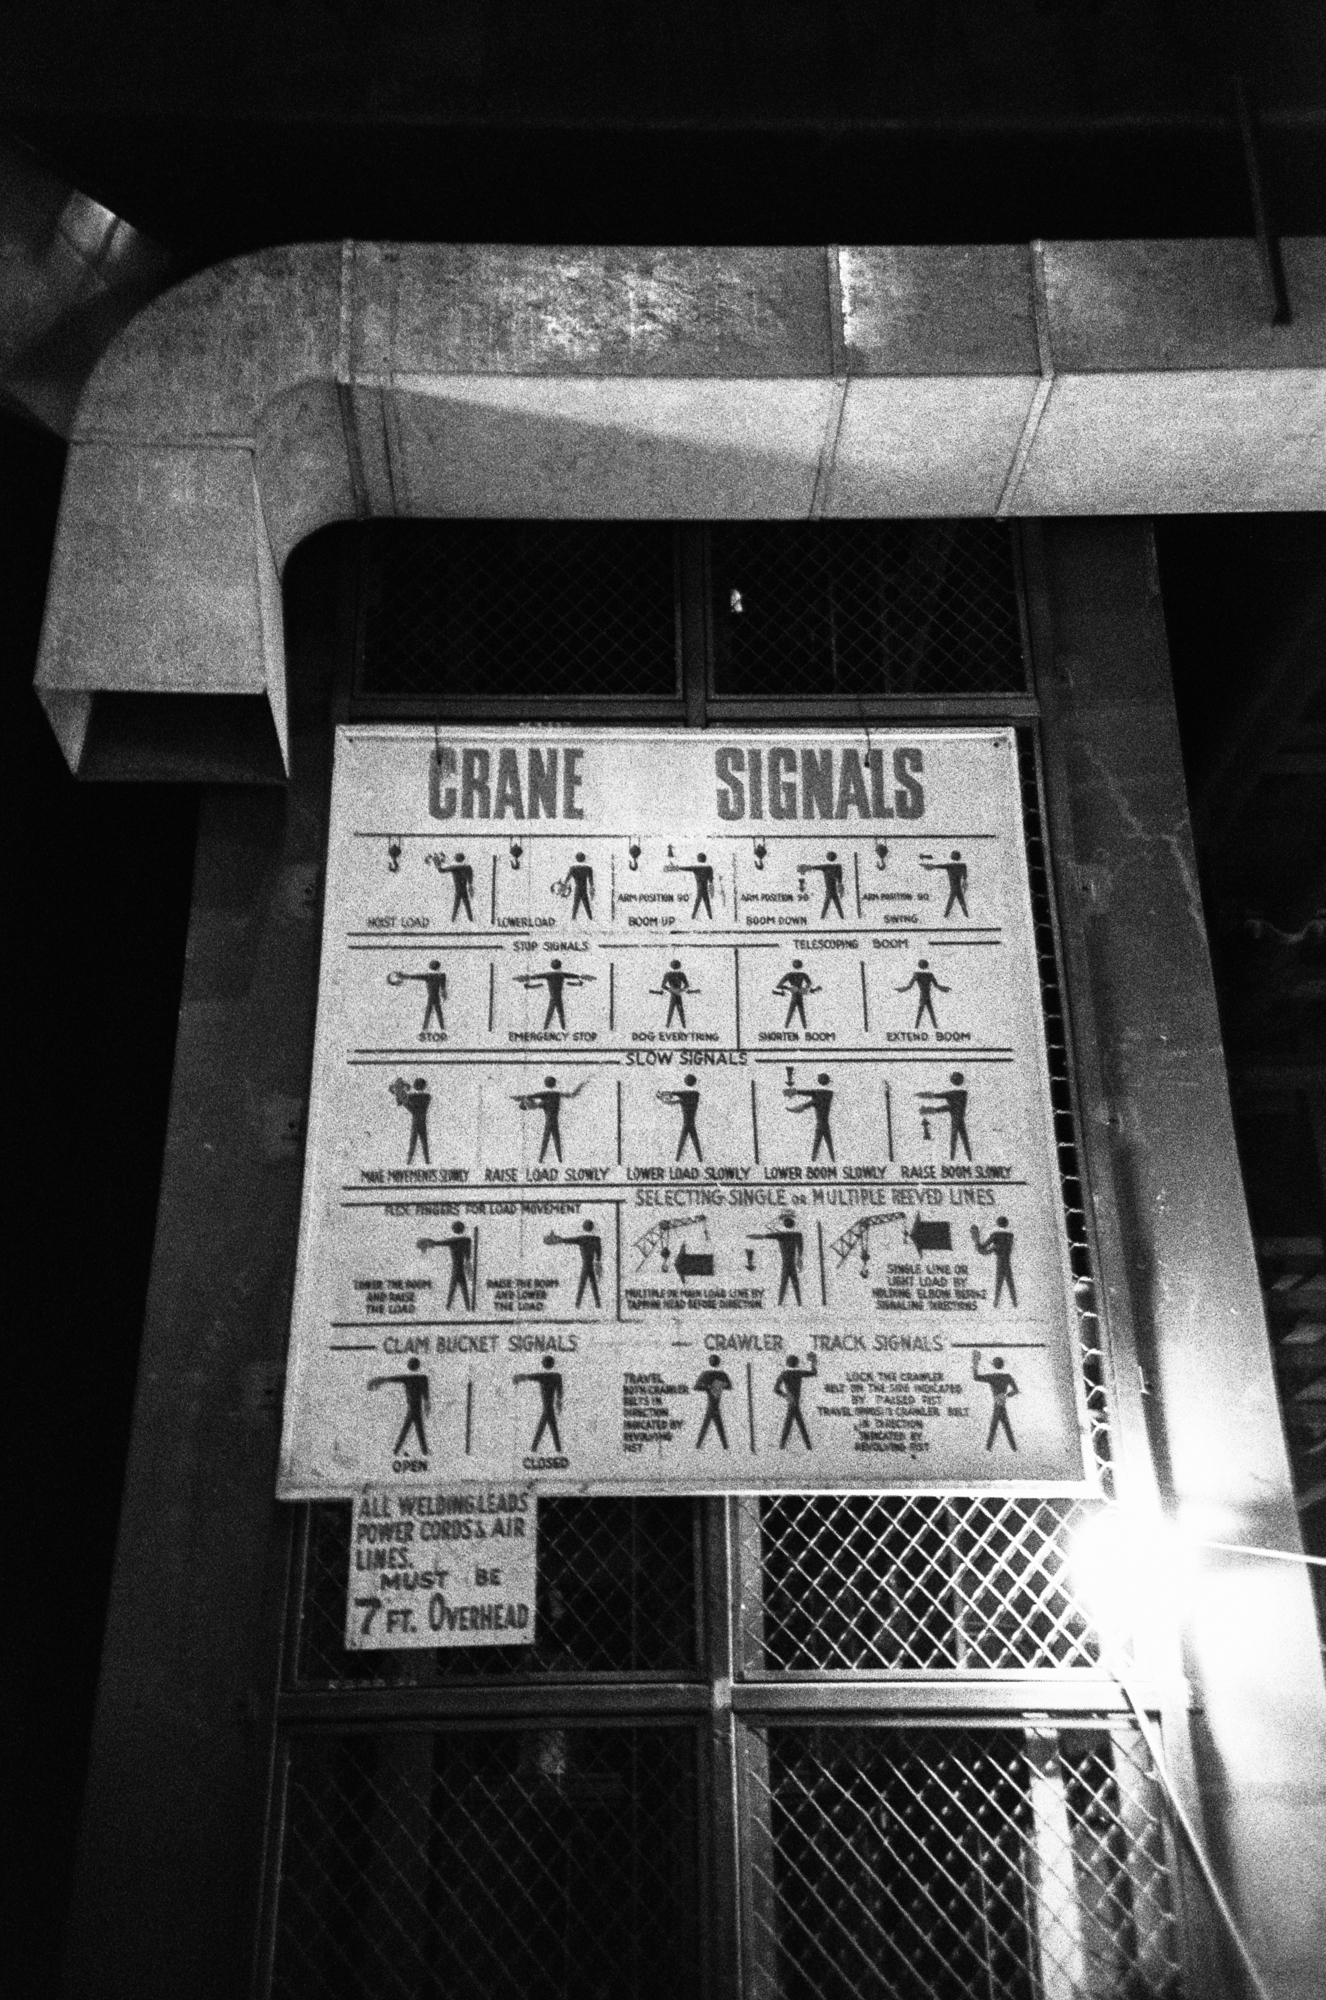 CRANE SIGNALS
HOIST LOAD
LOWER LOAD
ARM POSITION 90
BOOM UP
ARM POSITION 90
BOOM DOWN
ARM POSITION 90
SWING
STOP SIGNALS
TELESCOPING BOOM
STOP
EMERGENCY STOP
DOG EVERYTHING
SHORTEN BOOM
EXTEND BOOM
SLOW SIGNALS
MAKE MOVEMENTS SLOWLY
RAISE LOAD SLOWLY
LOWER LOAD SLOWLY
LOWER BOOM SLOWLY
RAISE BOOM SLOWLY
FLEX FINGERS FOR LOAD MOVEMENT
SELECTING SINGLE OR MULTIPLE REEVED LINES
LOWER THE BOOM
AND RAISE
THE LOAD
RAISE THE BOOM
AND LOWER
THE LOAD
MULTIPLE OR MAIN LOAD LINE BY
TAPPING HEAD BEFORE DIRECTION
SINGLE LINE OR
LIGHT LOAD BY
HOLDING ELBOW BEFORE
SIGNALING DIRECTIONS
CLAM BUCKET SIGNALS
CRAWLER TRACK SIGNALS
OPEN
CLOSED
TRAVEL
BOTH CRAWLER
BELTS IN
DIRECTION
INDICATED BY
REVOLVING
FIST
LOCK THE CRAWLER
BELT ON THE SIDE INDICATED
BY RAISED FIST
TRAVEL OPPOSITE CRAWLER BELT
IN DIRECTION
INDICATED BY
REVOLVING FIST
ALL WELDING LEADS
POWER CORDS & AIR
LINES.
MUST BE
7 FT. OVERHEAD